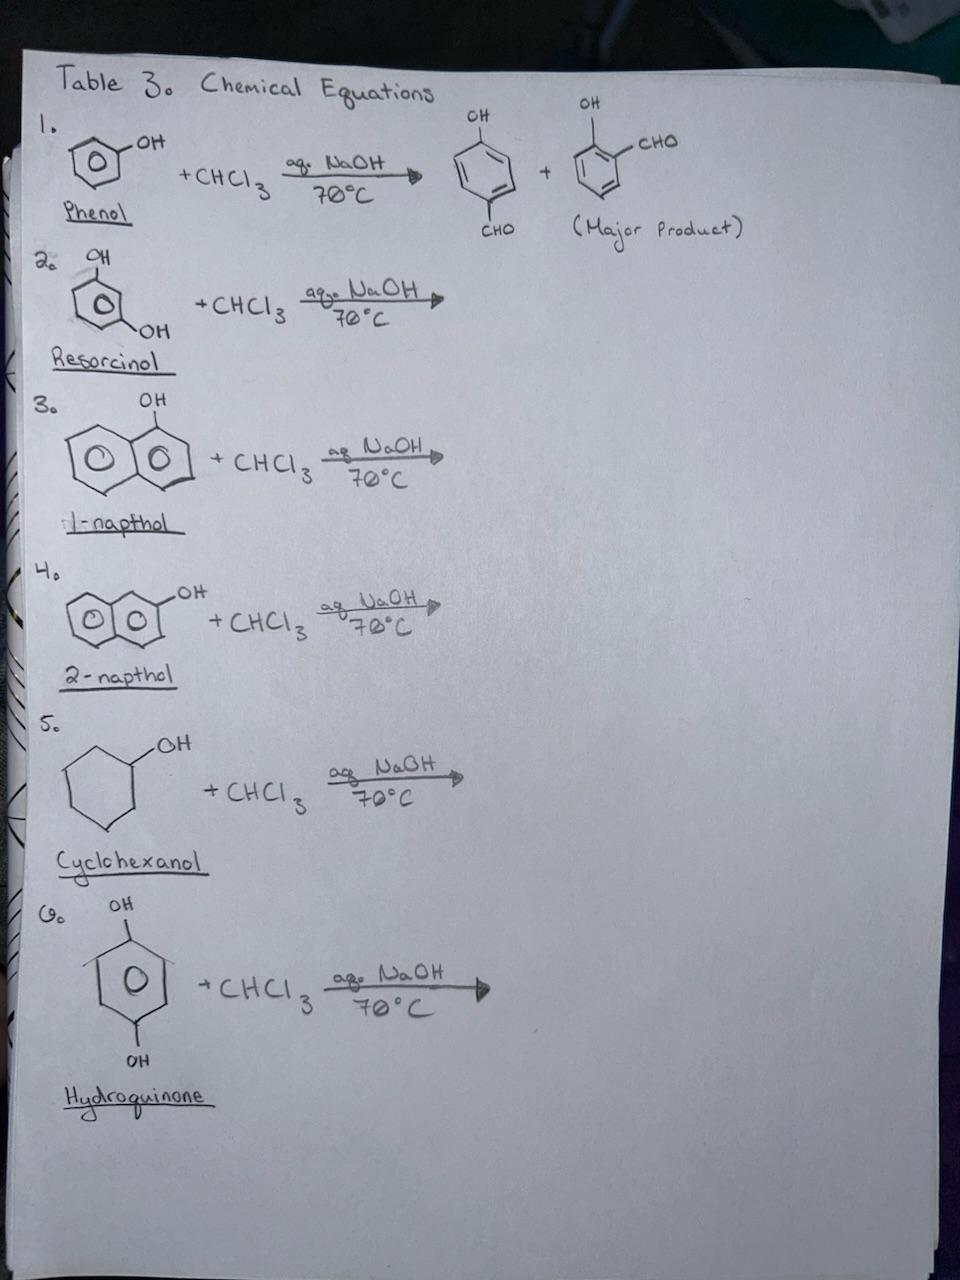 Table 3. Chemical Equations
1.
OH
+ CHCl3 aq. NaOH 70°C
OH
CHO
+
OH
CHO
Phenol
(Major Product)
2.
OH
OH
+ CHCl3 aq. NaOH 70°C
Resorcinol
3.
OH
+ CHCl3 aq NaOH 70°C
1-napthol
4.
OH
+ CHCl3 aq NaOH 70°C
2-napthol
5.
OH
+ CHCl3 aq NaOH 70°C
Cyclohexanol
6.
OH
+ CHCl3 aq. NaOH 70°C
OH
Hydroquinone